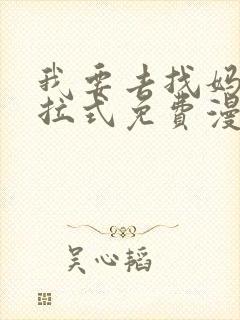 我要去找妈
拉式免費漫
吴心韬